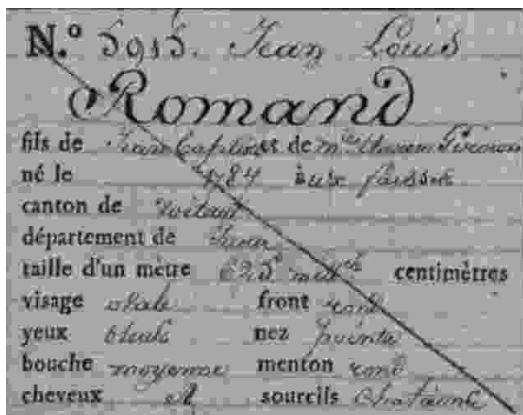 N.º 5915. Jean Louis
Romand
fils de Jean Baptiste et de
né le 1784
canton de
département de Jura
taille d'un mètre 625 mill. centimètres
visage ovale front rond
yeux bleus nez pointu
bouche moyenne menton rond
cheveux et sourcils chatains